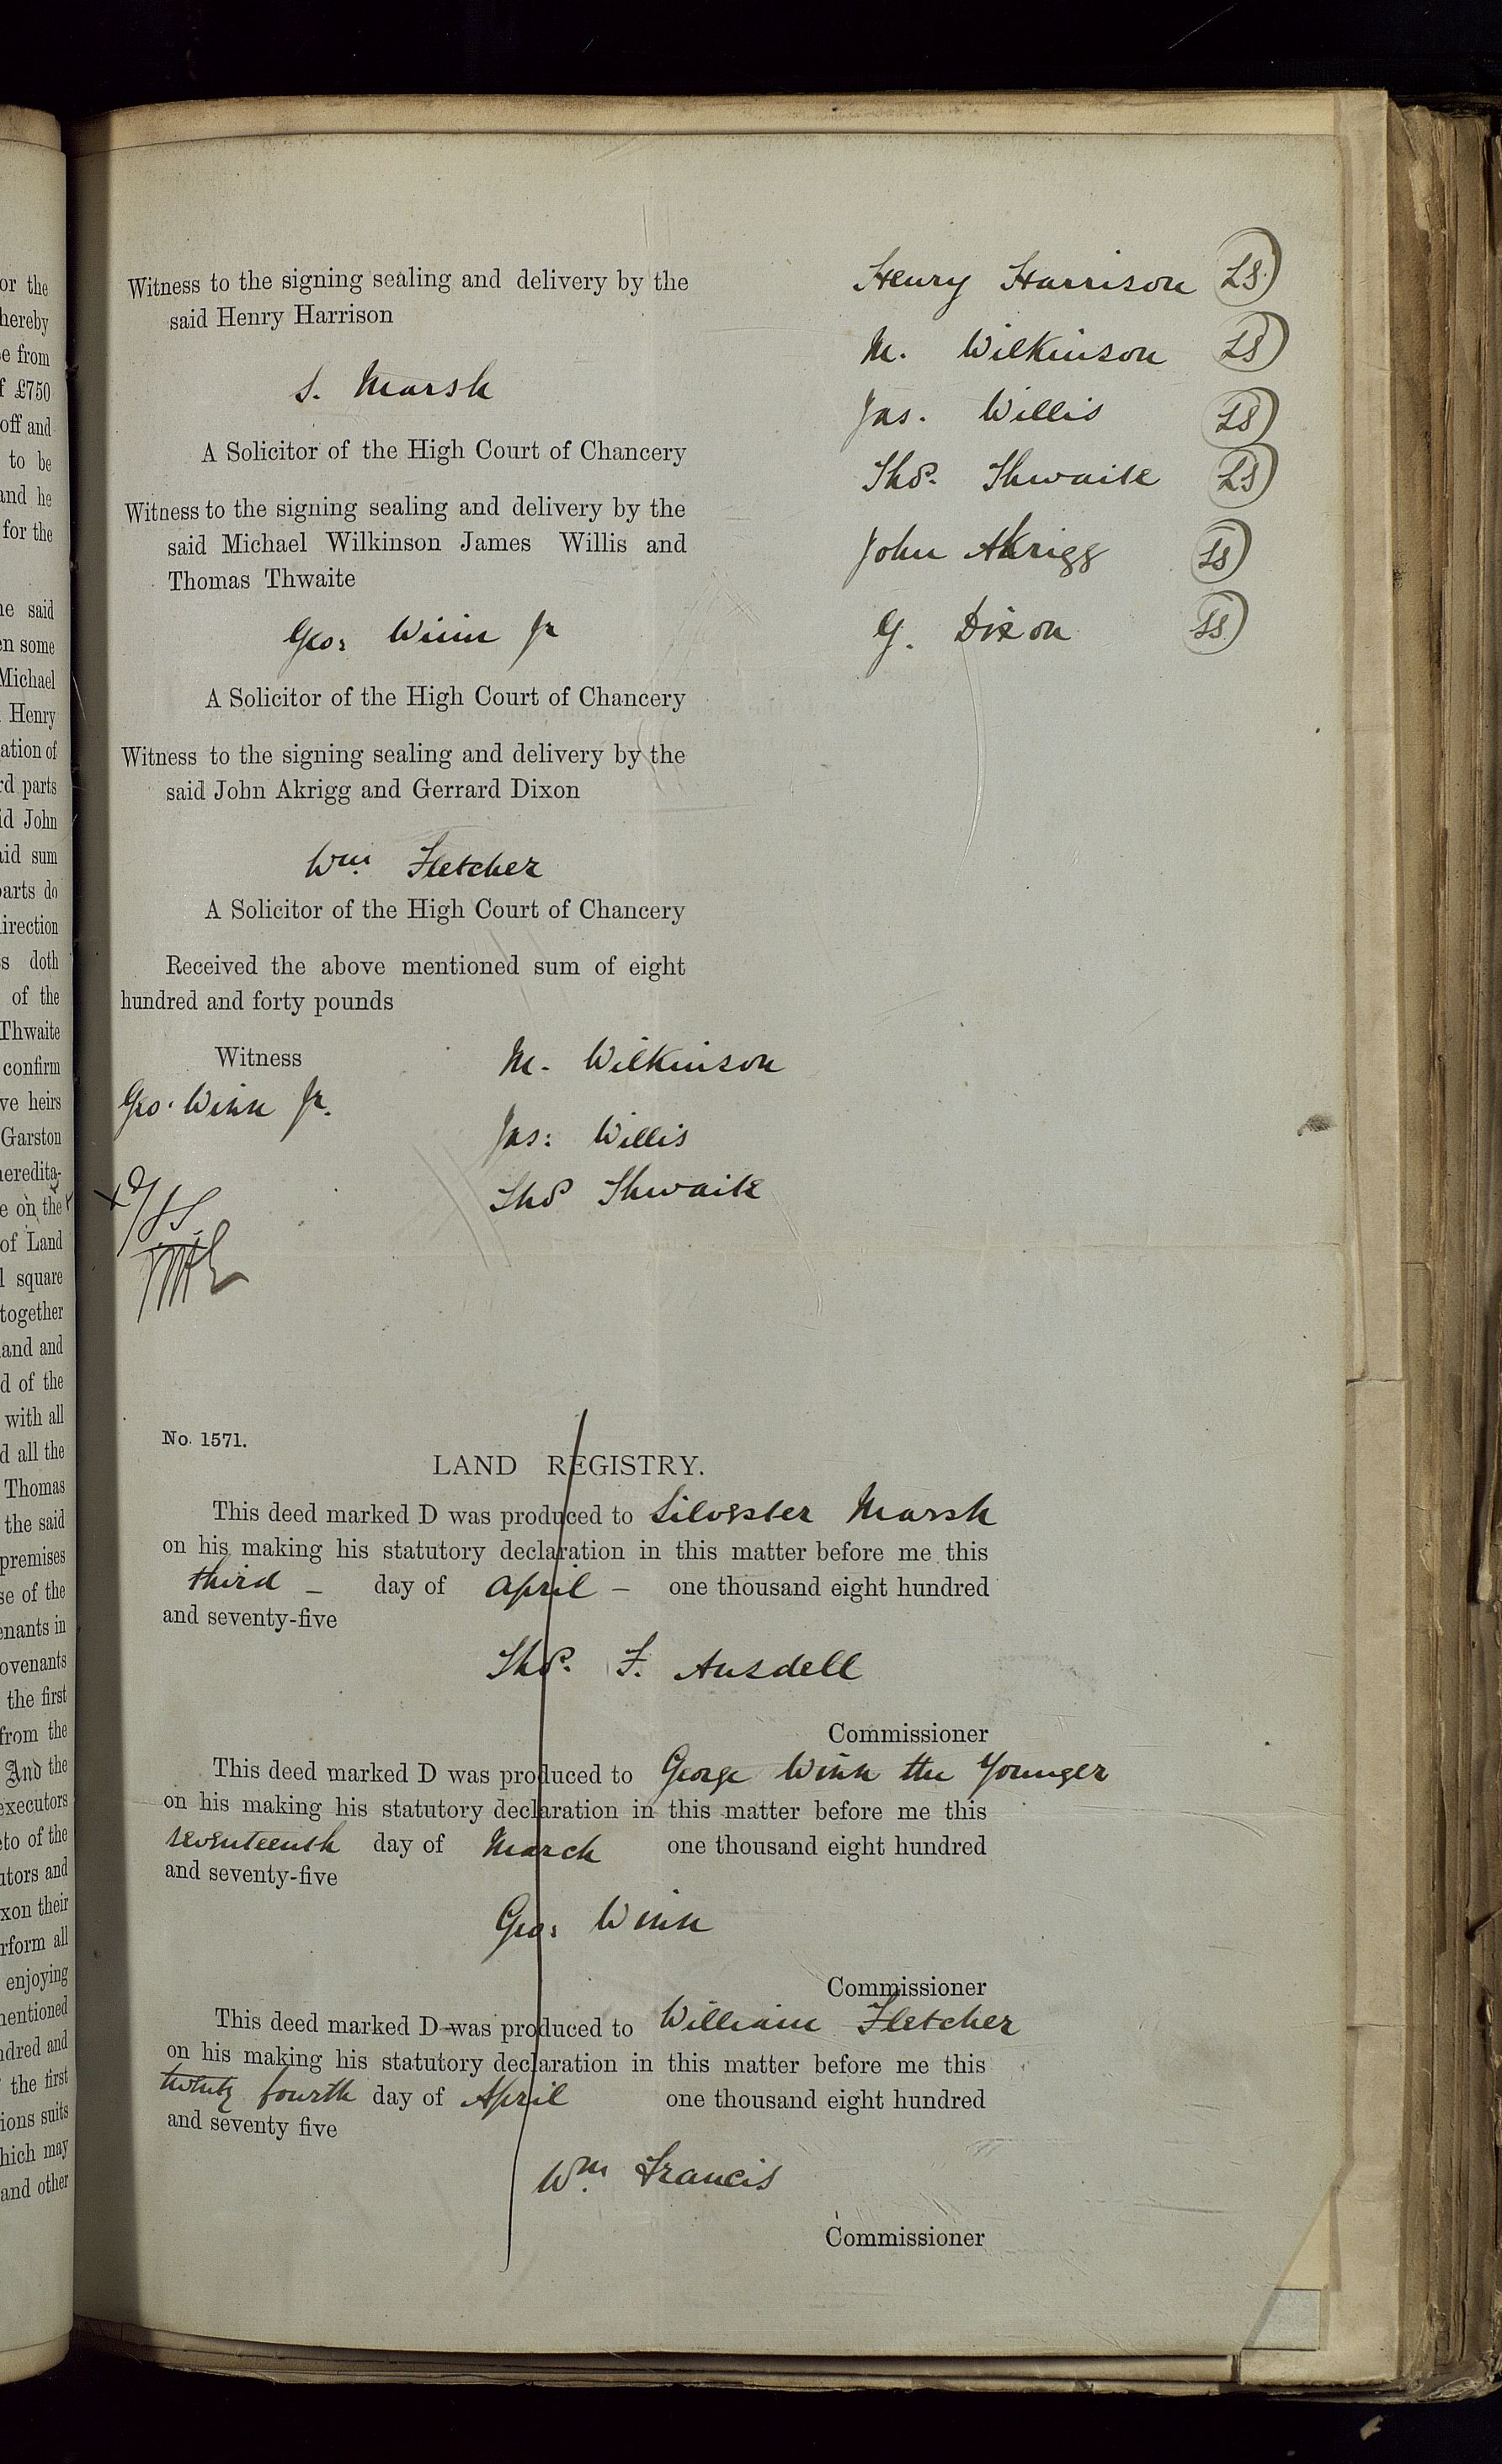 or the
hereby
e from
f £750
off and
to be
and he
for the
he said
en some
Michael
Henry
ation of
rd parts
id John
aid sum
parts do
irection
s doth
of the
Thwaite
confirm
ve heirs
Garston
heredita-
e on the
of Land
l square
together
and and
d of the
with all
d all the
Thomas
the said
premises
se of the
enants in
ovenants
the first
from the
And the
executors
eto of the
utors and
xon their
rform all
enjoying
mentioned
ndred and
the first
ions suits
hich may
and other
Witness to the signing sealing and delivery by the
said Henry Harrison
S. Marsh
A Solicitor of the High Court of Chancery
Witness to the signing sealing and delivery by the
said Michael Wilkinson James Willis and
Thomas Thwaite
Geo: Winn Jr
A Solicitor of the High Court of Chancery
Witness to the signing sealing and delivery by the
said John Akrigg and Gerrard Dixon
Wm. Fletcher
A Solicitor of the High Court of Chancery
Henry Harrison LS
M. Wilkinson LS
Jas. Willis LS
Thos. Thwaite LS
John Akrigg LS
G. Dixon LS
Received the above mentioned sum of eight
hundred and forty pounds
Witness
Geo. Winn Jr.
M. Wilkinson
Jas: Willis
Thos Thwaite
No. 1571.
LAND REGISTRY.
This deed marked D was produced to Silvester Marsh
on his making his statutory declaration in this matter before me this
third – day of April – one thousand eight hundred
and seventy-five
Thos. F. Ansdell
Commissioner
This deed marked D was produced to George Winn the Younger
on his making his statutory declaration in this matter before me this
seventeenth day of March one thousand eight hundred
and seventy-five
Geo: Winn
Commissioner
This deed marked D was produced to William Fletcher
on his making his statutory declaration in this matter before me this
twenty fourth day of April one thousand eight hundred
and seventy five
Wm. Francis
Commissioner